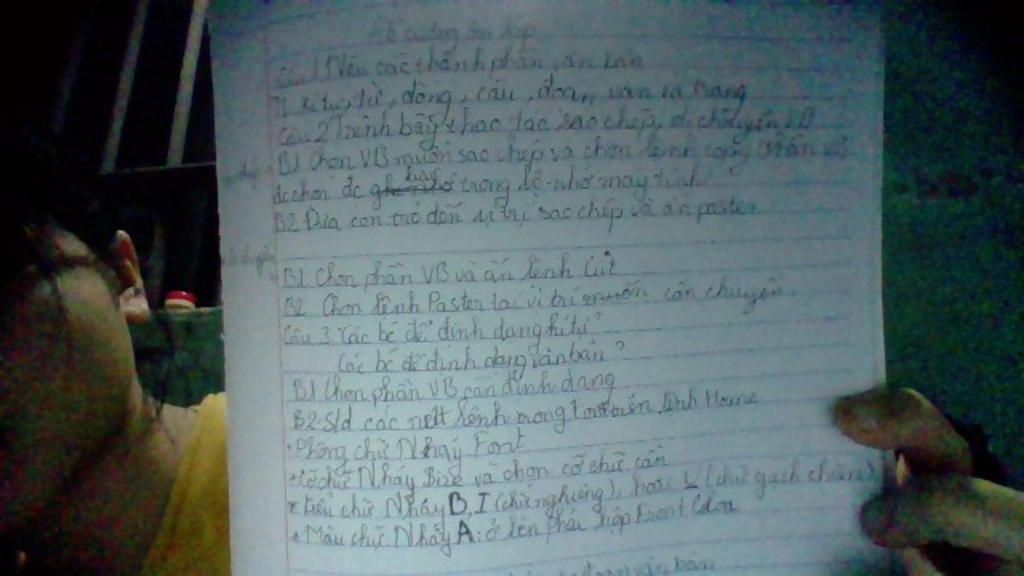 Đề cương ôn tập
Câu 1 Nêu các thành phần văn bản
Tl kí tự, từ, dòng, câu, đoạn, văn và trang
Câu 2 Trình bày thao tác sao chép, di chuyển VB
B1 Chọn VB muốn sao chép và chọn lệnh copy
đc chọn đc lưu trong bộ nhớ máy tính
B2 Đưa con trỏ đến vị trí sao chép và ấn paster
B1 Chọn phần VB và ấn lệnh Cut
B2 Chọn lệnh Paster tại vị trí muốn cần chuyển
Câu 3 Các bc để định dạng kí tự?
Các bc để định dạng văn bản?
B1 Chọn phần VB cần định dạng
B2 S/d các nút lệnh trong lệnh Home
Phông chữ Nháy Font
Cỡ chữ Nháy Size và chọn cỡ chữ cần
Kiểu chữ Nháy B, I (chữ nghiêng), hoặc (chữ gạch chân)
Màu chữ Nháy A: ở bên phải hộp Front Color
đoạn văn bản